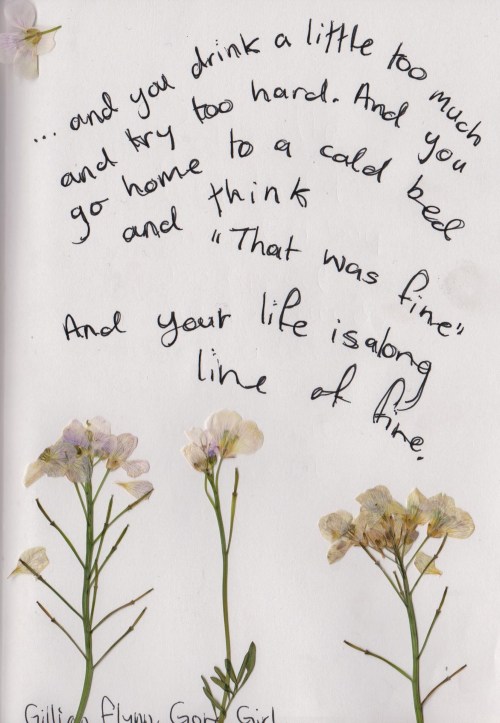 ... and you drink a little too much
and try too hard. And you
go home to a cold bed
and think
"That was fine"
And your life is a long
line of fine.
Gillian Flynn, Gone Girl